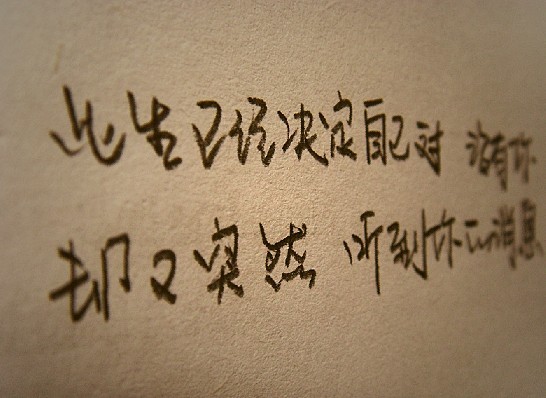 此生已经决定自己过 没有你
却又突然 听到你的消息